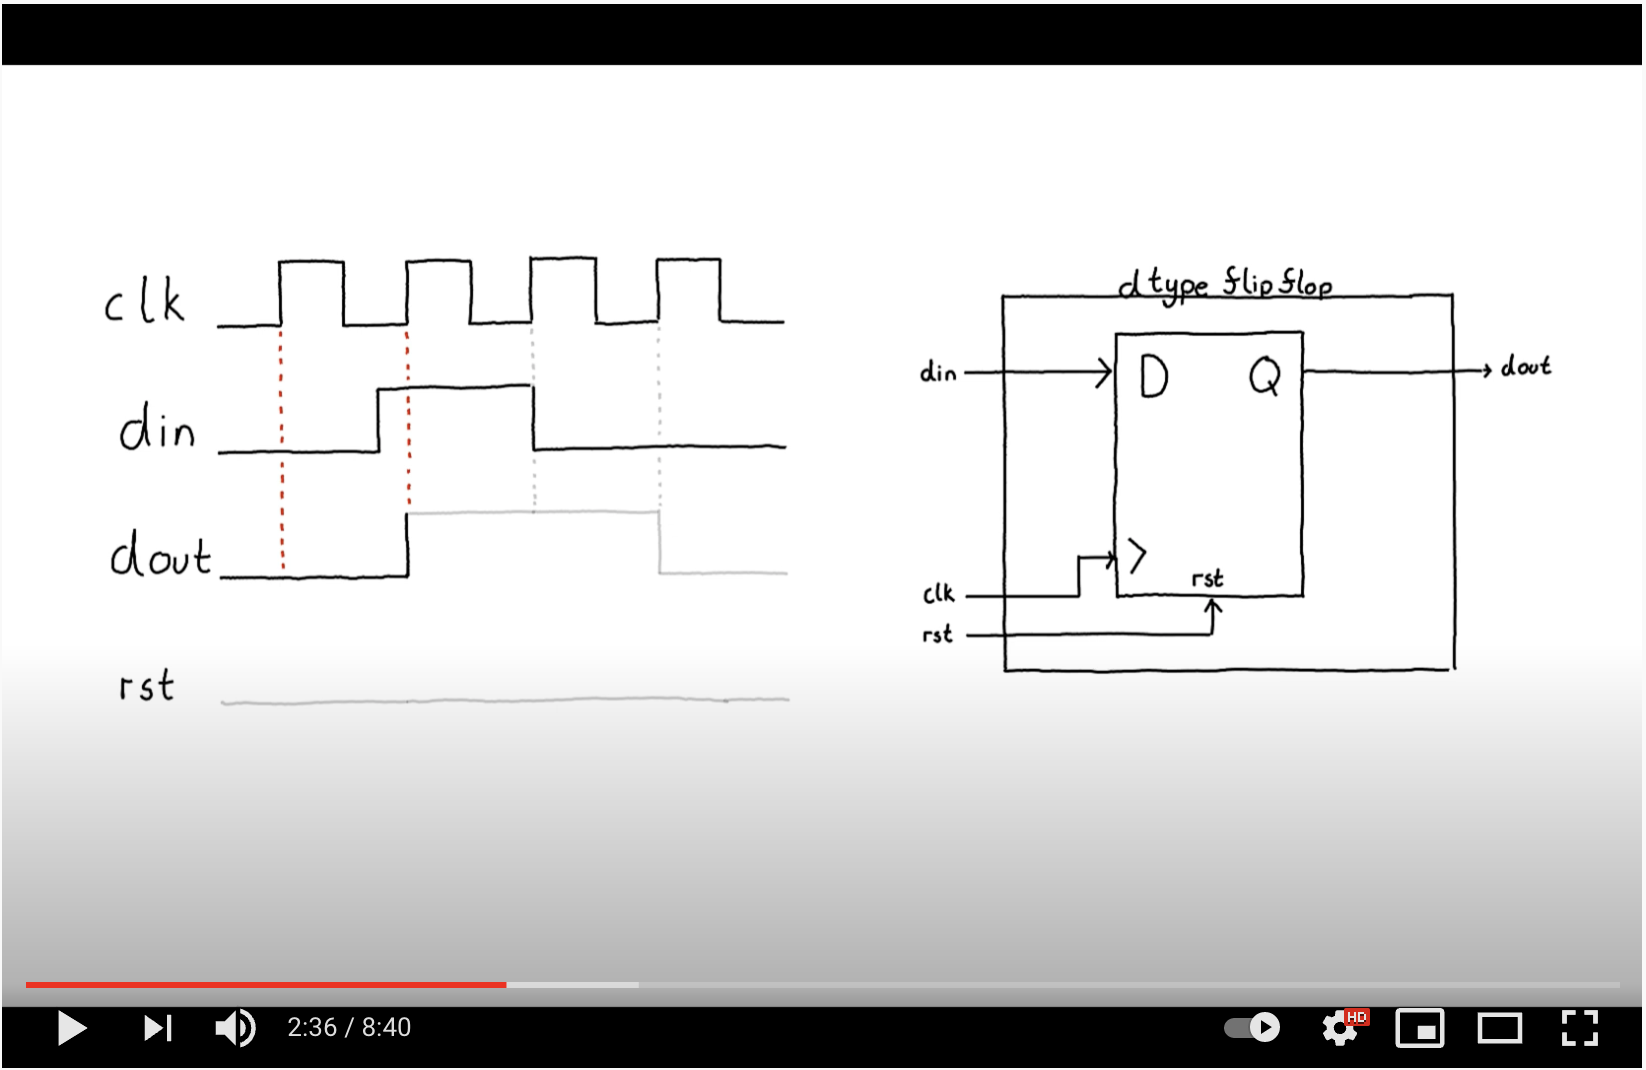 clk
din
dout
rst
d type flip flop
din
D
Q
dout
clk
>
rst
rst
2:36 / 8:40
HD